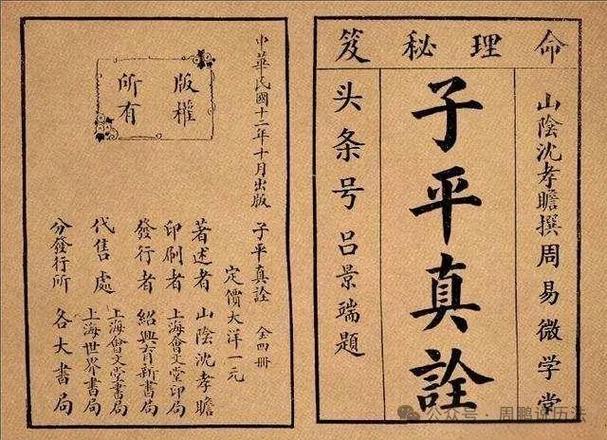 命理秘笈
山陰沈孝瞻撰周易微学堂
子平真詮
头条号吕景端題
中華民國十二年十月出版 子平真詮 全四冊
定價大洋一元
版權
所有
著述者 山陰沈孝瞻
印刷者 上海會文堂印局
發行者 紹興育新書局
代售處 上海會文堂書局
上海世界書局
分發行所 各大書局
公众号 · 周鹏说历法